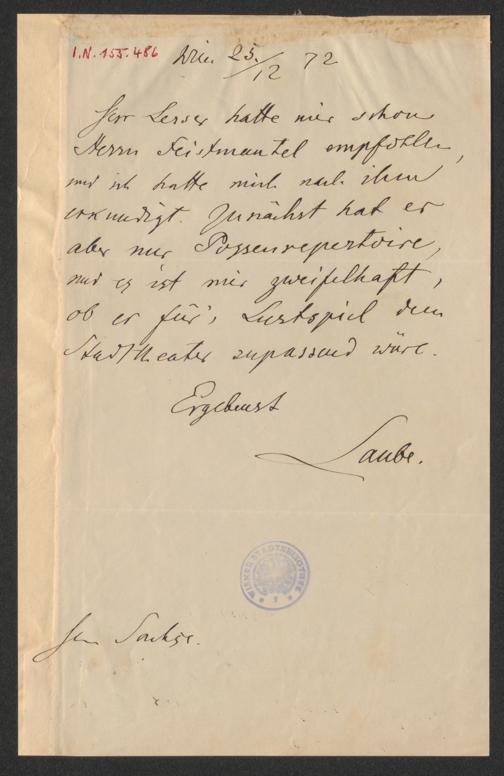 I.N. 155.486
Wien 25./12 72
Herr Lesser hatte mir schon
Herrn Feistmantel empfohlen,
und ich hatte mich nach ihm
erkundigt. Zunächst hat er
aber nur Possenrepertoire,
und es ist mir zweifelhaft,
ob er für's Lustspiel dem
Stadttheater zupassend wäre.
Ergebenst
Laube.
WIENER STADTBIBLIOTHEK
Herrn